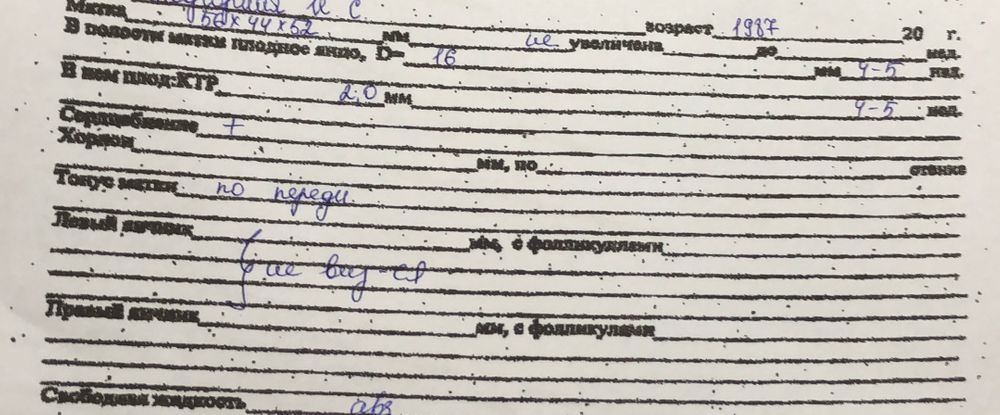 И С
Матка 56×44×52 мм возраст 1987 20 г.
не увеличена до нед.
В полости матки плодное яйцо, D= 16 мм 4-5 нед.
В нем плод:КТР 2,0 мм 4-5 нед.
Сердцебиение +
Хорион мм, по стенке
Тонус матки по переди
Левый яичник мм, с фолликулами
{ не виз-ся
Правый яичник мм, с фолликулами
Свободная жидкость abs